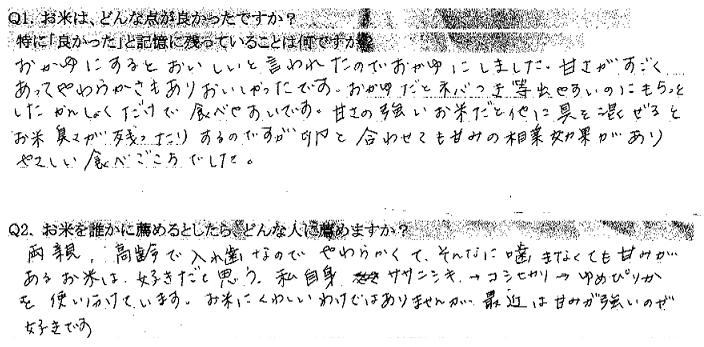 Q1. お米は、どんな点が良かったですか？
特に「良かった」と記憶に残っていることは何ですか
おかゆにするとおいしいと言われたのでおかゆにしました。甘さがすごく
あってやわらかさもありおいしかったです。おかゆだとネバつき等出やすいのにもちっと
したかんしょくだけで食べやすいです。甘さの強いお米だと他に具を混ぜると
お米臭さが残ったりするのですが卵と合わせても甘みの相乗効果があり
やさしい食べごこちでした。
Q2. お米を誰かに薦めるとしたら、どんな人に薦めますか？
両親。高齢で入れ歯なのでやわらかくて、そんなに噛まなくても甘みが
あるお米は、好きだと思う。私自身 ササニシキ→コシヒカリ→ゆめぴりか
を使い分けています。お米にくわしいわけではありませんが、最近は甘みが強いのが
好きです